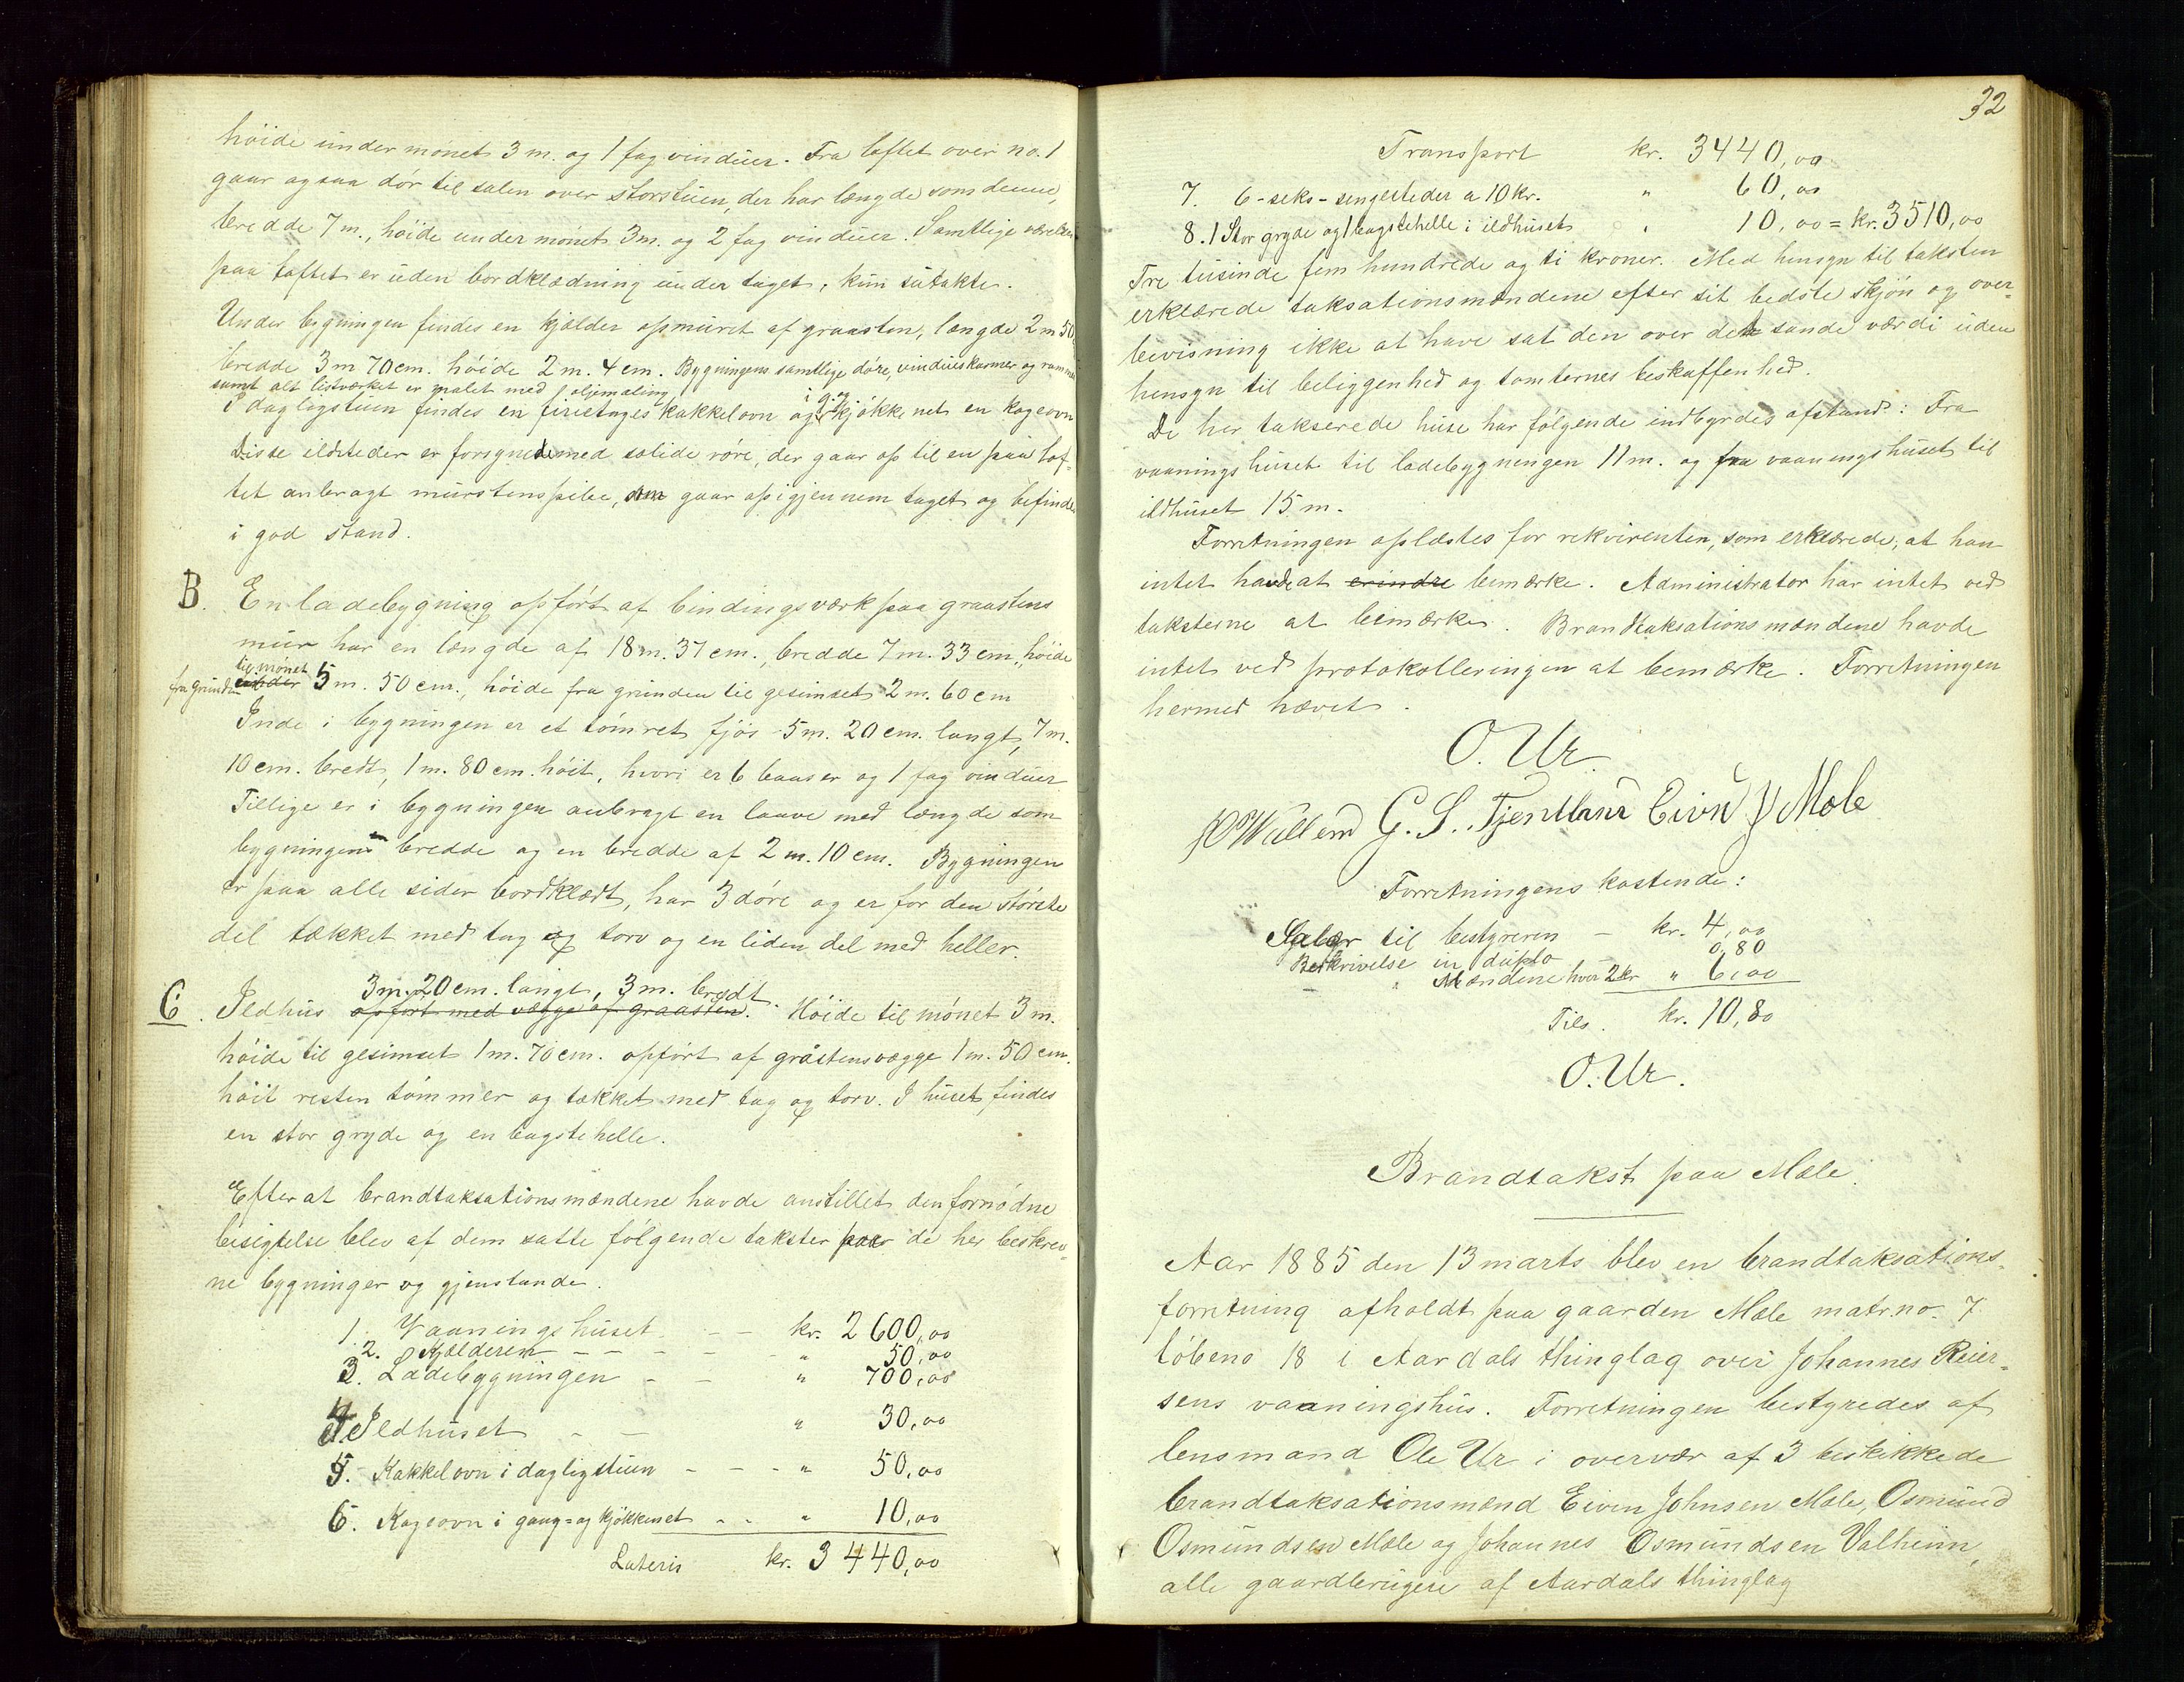 høide under mønet 3 m. og 1 fag vinduer. Fra loftet over no. 1
gaar ogsaa dør til salen over storstuen, der har længde som denne,
bredde 7 m., høide under mønet 3 m. og 2 fag vinduer. Samtlige værelser
paa loftet er uden bordklædning under taget, kun sutakte.
Under bygningen findes en kjælder opmuret af graasten, længde 2 m 50
bredde 3 m 70 cm. høide 2 m. 4 cm. Bygningens samtlige døre, vindueskarmer og rammer
samt alt listværket er malet med oljemaling
I dagligstuen findes en firetages kakkelovn og i g. og kjøkkenet en kogeovn
Disse ildsteder er forsynede med solide røre, der gaar op til en paa lof-
tet anbragt murstenspibe, som gaar op igjennem taget og befindes
i god stand.
B. En ladebygning opført af bindingsværk paa graastens
mur har en længde af 18 m. 37 cm., bredde 7 m. 33 cm., høide
fra grunden til mønet 5 m. 50 cm., høide fra grunden til gesimset 2 m. 60 cm
Inde i bygningen er et tømret fjøs 5 m. 20 cm. langt, 7 m.
10 cm. bredt, 1 m. 80 cm. høit, hvori er 6 baaser og 1 fag vinduer
Tillige er i bygningen anbragt en laave med længde som
bygningens bredde og en bredde af 2 m. 10 cm. Bygningen
er paa alle sider bordklædt, har 3 døre og er for den største
del tækket med tag og torv og en liden del med heller.
3 m. 20 cm. langt, 3 m. bredt.
C. Ildhus opført med vægge af graasten. Høide til mønet 3 m.
høide til gesimset 1 m. 70 cm. opført af gråstensvægge 1 m. 50 cm.
høit resten tømmer og tækket med tag og torv. I huset findes
en stor gryde og en bagstehelle.
Efterat brandtaksationsmændene havde anstillet den fornødne
besigtelse blev af dem satte følgende takster paa de her beskrev-
ne bygninger og gjenstande.
1. Vaaningshuset - - kr. 2600,00
2. Kjælderen - - - - - " 50,00
3. Ladebygningen - - " 700,00
4. Ildhuset - - " 30,00
5. Kakkelovn i dagligstuen - - - " 50,00
6. Kogeovn i gang- og kjøkkenet - - " 10,00
Lateris kr. 3440,00
32
Transport kr. 3440,00
7. 6 - seks - sengesteder a 10 kr. " 60,00
8. 1 Stor gryde og 1 bagstehelle i ildhuset " 10,00 = kr. 3510,00
Tre tusinde fem hundrede og ti kroner. Med hensyn til taksten
erklærede taksationsmændene efter sit bedste skjøn og over-
bevisning ikke at have sat den over den sande værdi uden
hensyn til beliggenhed og tomternes beskaffenhed.
De her takserede huse har følgende indbyrdes afstand: Fra
vaaningshuset til ladebygningen 11 m. og fra vaaningshuset til
ildhuset 15 m.
Forretningen oplæstes for rekvirenten, som erklærede, at han
intet havde at erindre bemærke. Administrator har intet ved
taksterne at bemærke. Brandtaksationsmændene havde
intet ved protokolleringen at bemærke. Forretningen
hermed hævet.
O. Ur
G. S. Tjentland Eivn J Mæle
Forretningens kostende:
Salær til bestyreren - kr. 4,00
Beskrivelse in duplo 0,80
" Mændene hver 2 kr " 6,00
Tils. kr. 10,80
O. Ur.
Brandtakst paa Mæle.
Aar 1885 den 13 marts blev en brandtaksations-
forretning afholdt paa gaarden Mæle matr. no. 7
løbeno 18 i Aardals thinglag over Johannes Reier-
sens vaaningshus. Forretningen bestyredes af
lensmand Ole Ur i overvær af 3 beskikkede
brandtaksationsmænd Eiven Johnsen Mæle, Osmund
Osmundsen Mæle og Johannes Osmundsen Valheim,
alle gaardbrugere af Aardals thinglag